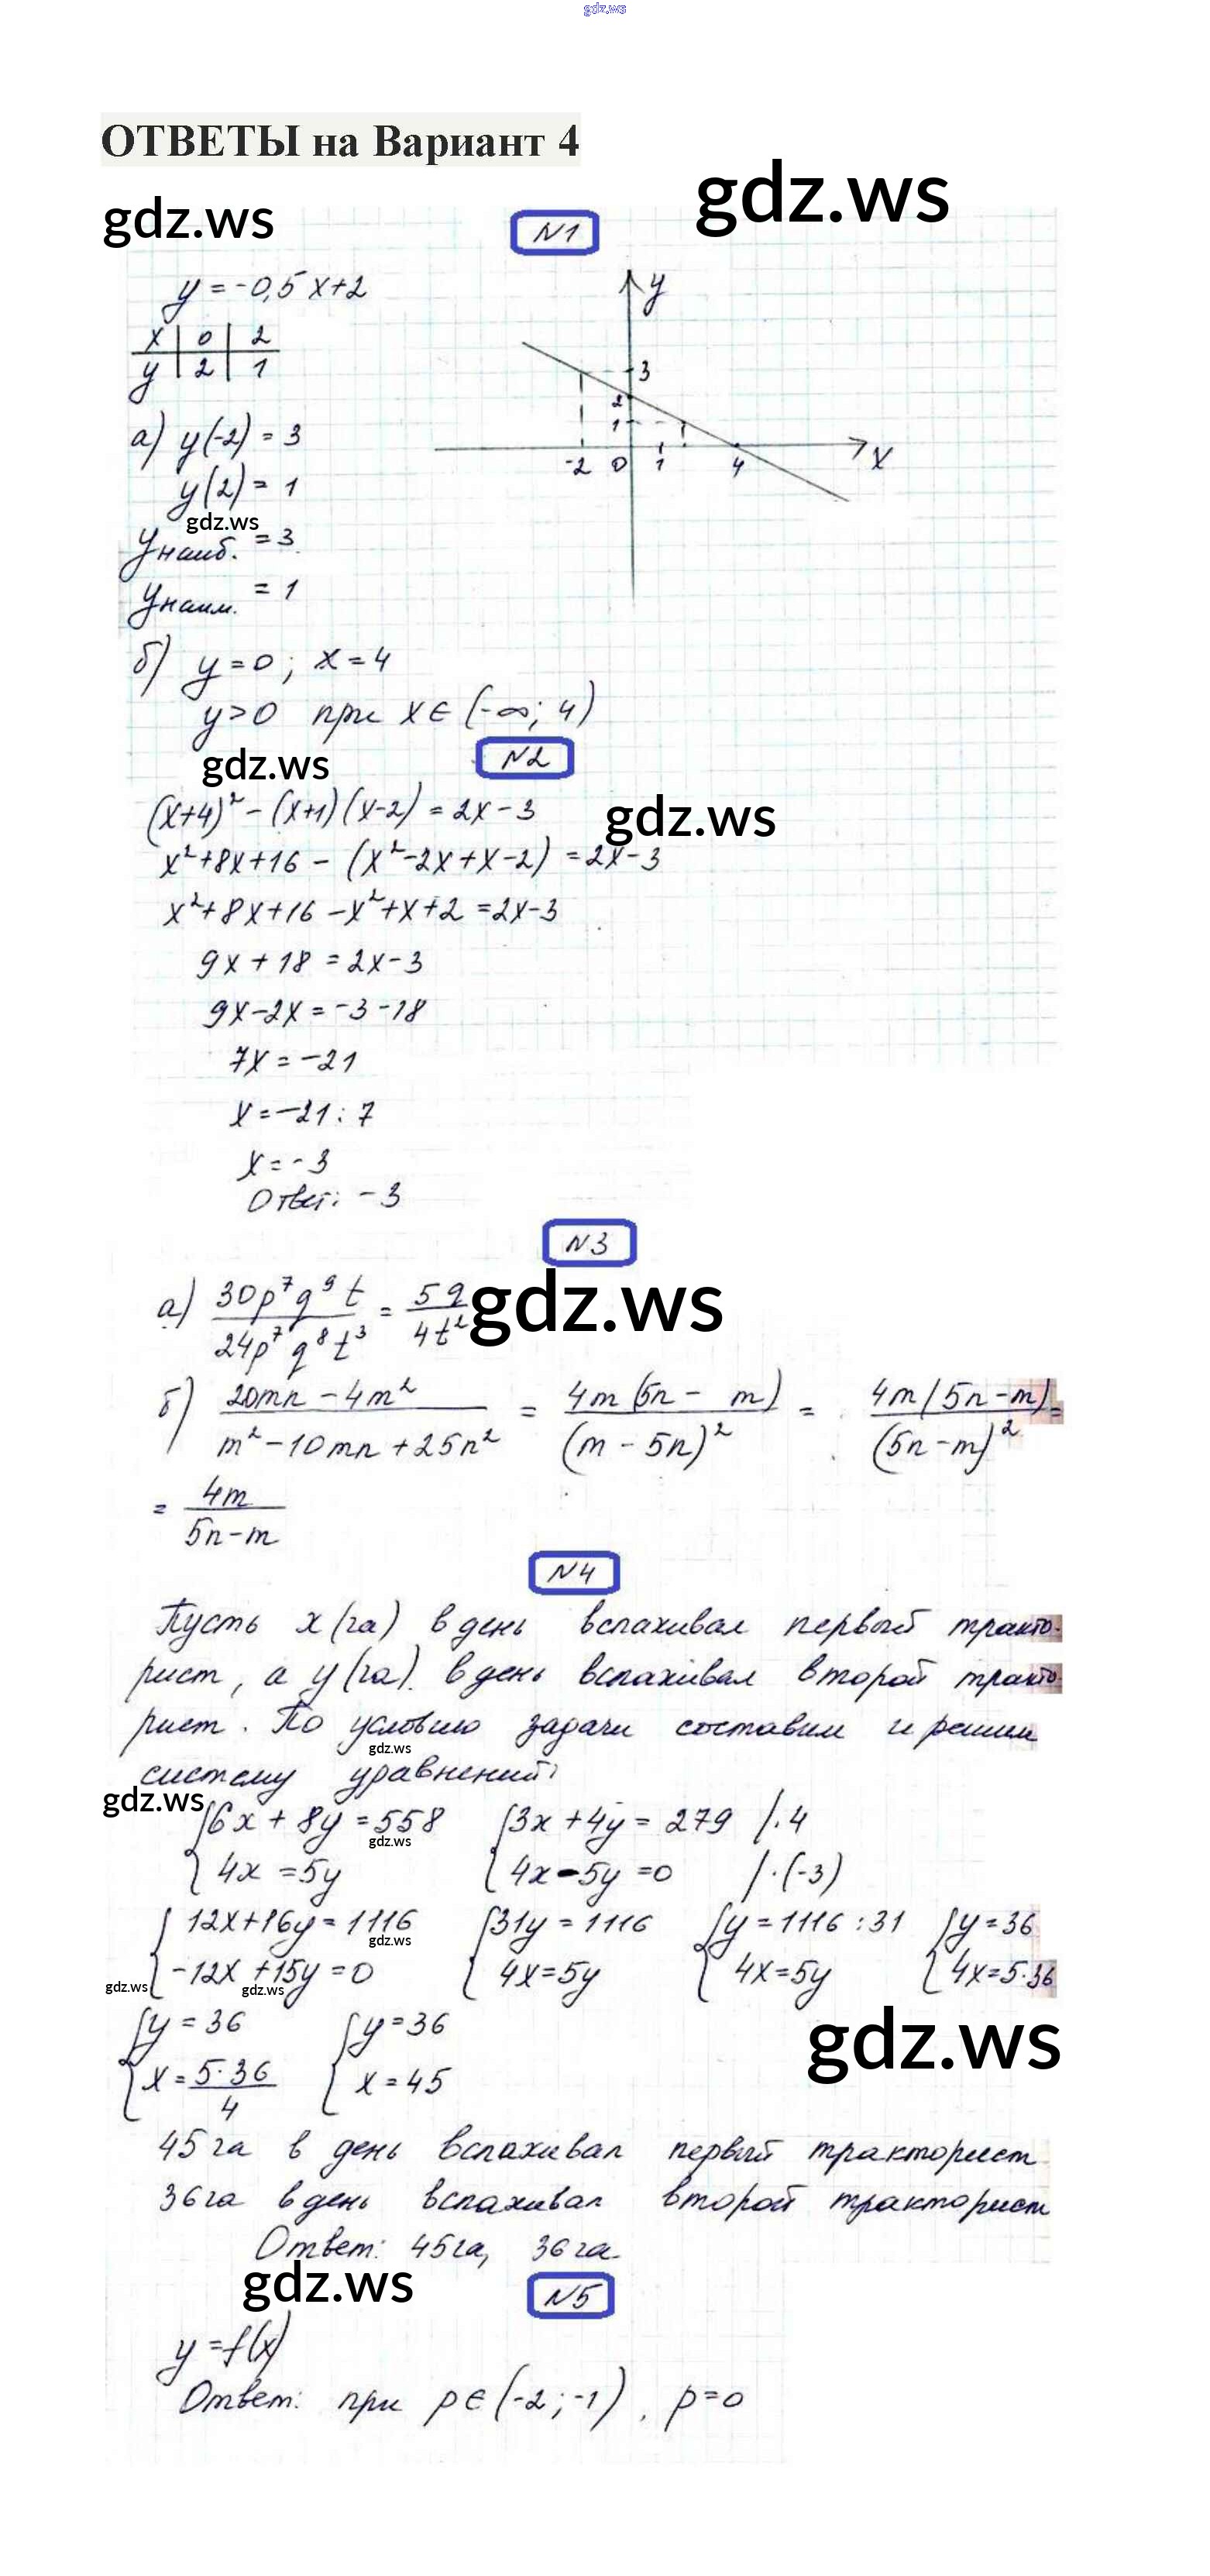 gdz.ws
ОТВЕТЫ на Вариант 4
gdz.ws
gdz.ws
N1
y = -0,5x+2
x | 0 | 2
y | 2 | 1
y
3
2
1
-2 0 1 4 x
а) y(-2) = 3
y(2) = 1
gdz.ws
yнаиб. = 3
yнаим. = 1
б) y=0; x=4
y>0 при x∈(-∞; 4)
gdz.ws
N2
gdz.ws
(x+4)² - (x+1)(x-2) = 2x-3
x²+8x+16 - (x²-2x+x-2) = 2x-3
x²+8x+16 -x²+x+2 =2x-3
9x+18 = 2x-3
9x-2x = -3-18
7x = -21
x = -21 : 7
x = -3
Ответ: -3
N3
а) 30p⁷q⁹t / 24p⁷q⁸t³ = 5q / 4t²
gdz.ws
б) 20mn - 4m² / m² - 10mn + 25n² = 4m(5n - m) / (m - 5n)² = 4m(5n-m) / (5n-m)² =
= 4m / 5n-m
N4
Пусть x (га) в день вспахивал первый тракто-
рист, а y (га) в день вспахивал второй тракто-
рист. По условию задачи составим и решим
gdz.ws
систему уравнений:
gdz.ws
{6x + 8y = 558 {3x + 4y = 279 |·4
gdz.ws
{4x = 5y {4x-5y = 0 |·(-3)
{12x+16y = 1116 {31y = 1116 {y = 1116 : 31 {y = 36
gdz.ws
{-12x+15y = 0 {4x=5y {4x=5y {4x=5·36
gdz.ws
gdz.ws
{y = 36 {y = 36
{x = 5·36 / 4 {x = 45
gdz.ws
45 га в день вспахивал первый тракторист
36 га в день вспахивал второй тракторист
Ответ: 45 га, 36 га.
gdz.ws
N5
y = f(x)
Ответ: при p∈(-2; -1), p=0